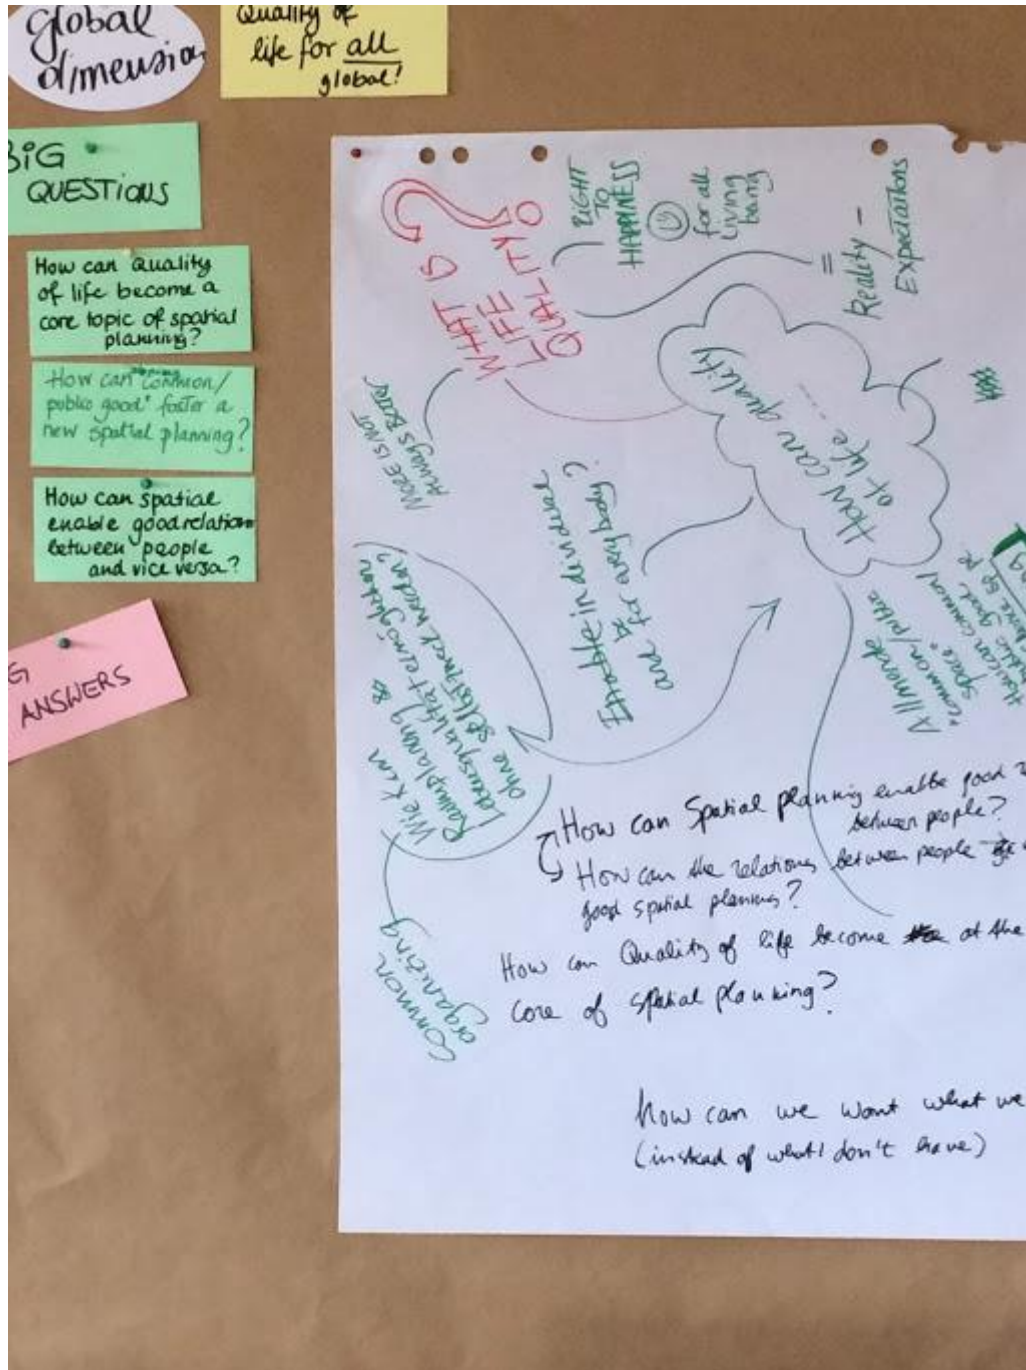 global
dimension
Quality of
life for all
global!
BIG
QUESTIONS
How can Quality
of life become a
core topic of spatial
planning?
How can "common/
public good" foster a
new spatial planning?
How can spatial
enable good relation
between people
and vice versa?
G
ANSWERS
WHAT IS
LIFE
QUALITY
?
RIGHT
TO
HAPPINESS
for all
living
being
=
Reality -
Expectations
MORE IS NOT
ALWAYS BETTER
HOW can quality
of life
and for everybody?
Wie kan
Raumplanung
Lebensqualität ermöglichen
ohne
werden?
common
organizing
Allmende
"common/public
space"
How can common/
public good
How can Spatial planning enable good
between people?
How can the relations between people
good spatial planning?
How can Quality of life become at the
core of spatial planning?
How can we want what we
(instead of what I don't have)